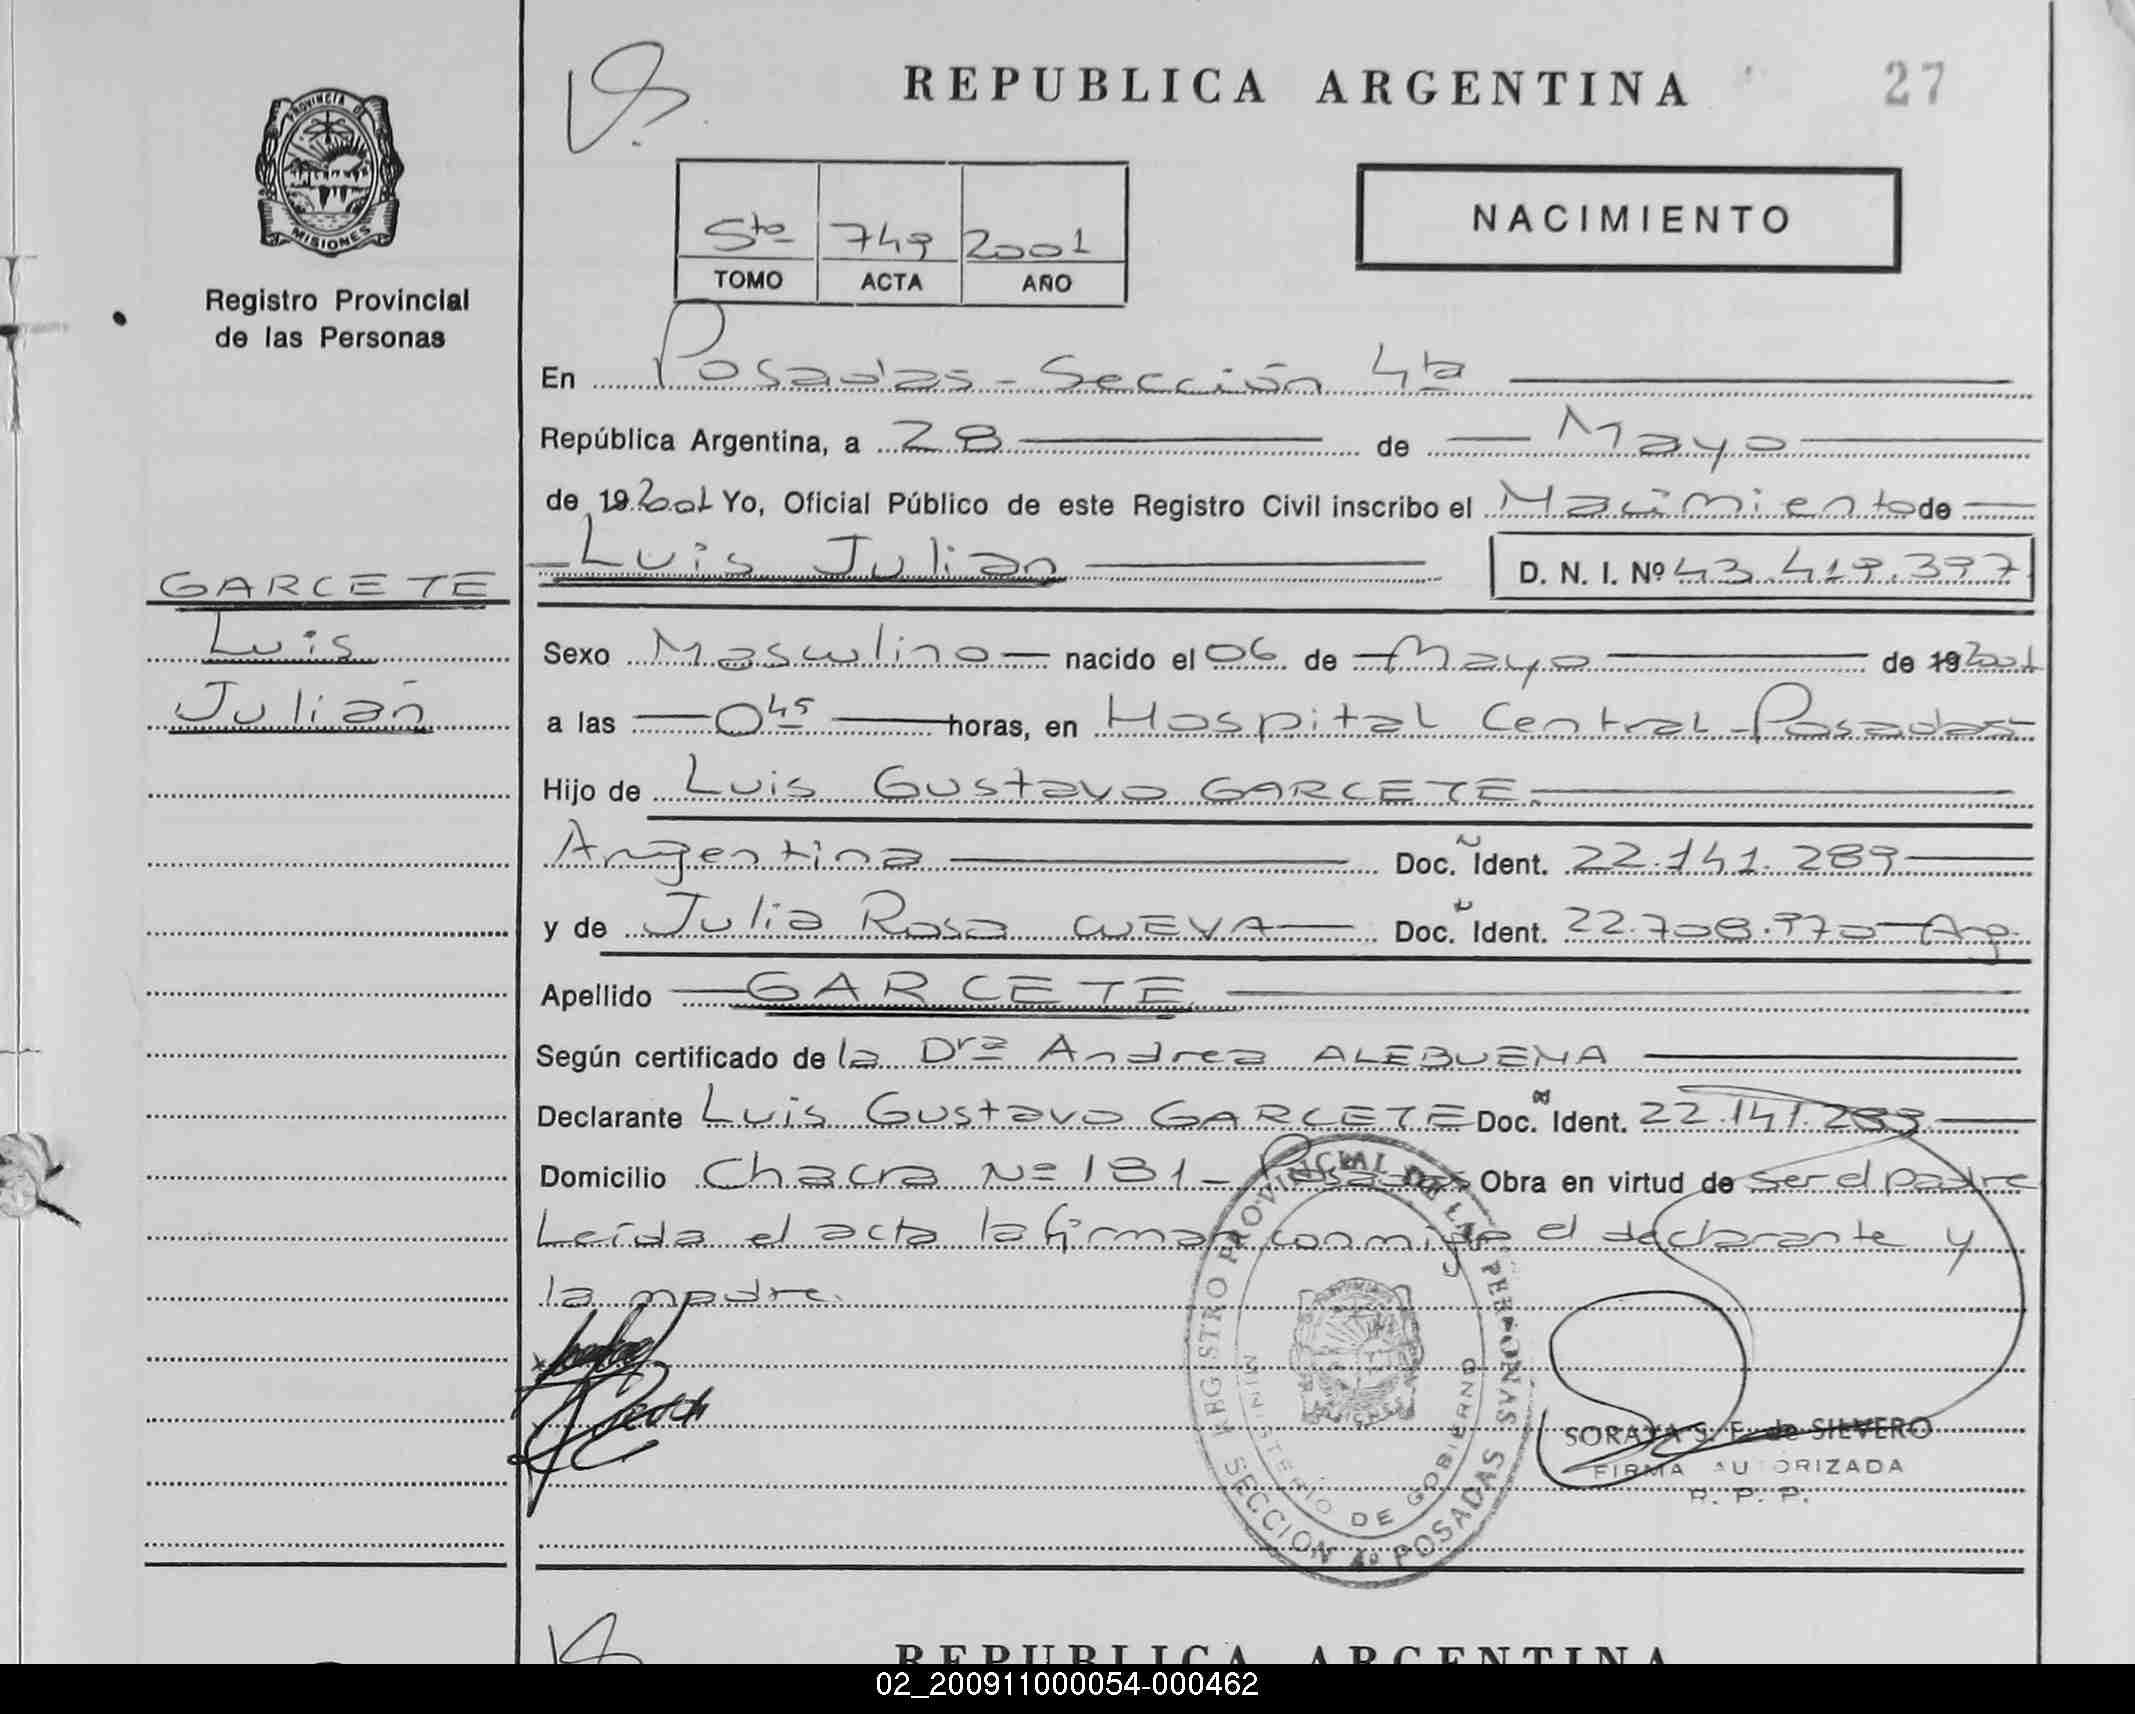 REPUBLICA ARGENTINA
27
PROVINCIA DE
MISIONES
Registro Provincial
de las Personas
5to 749 2001
TOMO ACTA AÑO
NACIMIENTO
En Posadas - Sección 4ta
República Argentina, a 28 de Mayo
de 19 2001 Yo, Oficial Público de este Registro Civil inscribo el Nacimiento de
Luis Julian
D. N. I. Nº 43.419.397
GARCETE
Luis
Julian
Sexo Masculino nacido el 06 de Mayo de 19 2001
a las 0 45 horas, en Hospital Central - Posadas
Hijo de Luis Gustavo GARCETE
Argentina Doc. Ident. 22.141.289
y de Julia Rosa CUEVA Doc. Ident. 22.708.970 Arg.
Apellido GARCETE
Según certificado de la Dra Andrea ALEBUENA
Declarante Luis Gustavo GARCETE Doc. Ident. 22.141.289
Domicilio Chacra Nº 181 - Posadas Obra en virtud de ser el padre
Leída el acta la firman conmigo el declarante y
la madre.
REGISTRO PROVINCIAL DE LAS PERSONAS
MINISTERIO DE GOBIERNO
SECCION 4º POSADAS
SORAYA S. F. de SILVERO
FIRMA AUTORIZADA
R. P. P.
REPUBLICA ARGENTINA
02_200911000054-000462